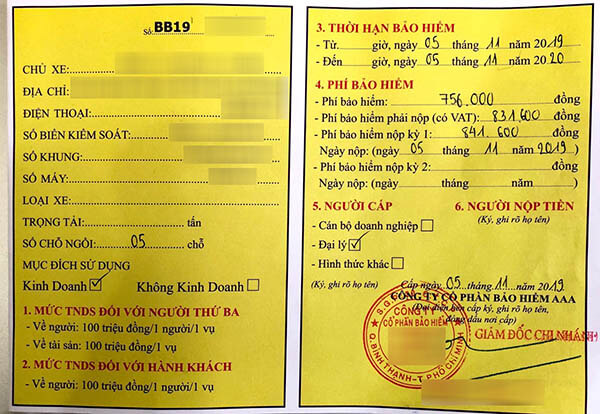 Số: BB19
CHỦ XE:
ĐỊA CHỈ:
ĐIỆN THOẠI:
SỐ BIỂN KIỂM SOÁT:
SỐ KHUNG:
SỐ MÁY:
LOẠI XE:
TRỌNG TẢI: tấn
SỐ CHỖ NGỒI: 05 chỗ
MỤC ĐÍCH SỬ DỤNG
Kinh Doanh ☑ Không Kinh Doanh ☐
1. MỨC TNDS ĐỐI VỚI NGƯỜI THỨ BA
- Về người: 100 triệu đồng/1 người/1 vụ
- Về tài sản: 100 triệu đồng/1 vụ
2. MỨC TNDS ĐỐI VỚI HÀNH KHÁCH
- Về người: 100 triệu đồng/1 người/1 vụ
3. THỜI HẠN BẢO HIỂM
- Từ giờ, ngày 05 tháng 11 năm 2019
- Đến giờ, ngày 05 tháng 11 năm 2020
4. PHÍ BẢO HIỂM
- Phí bảo hiểm: 756.000 đồng
- Phí bảo hiểm phải nộp (có VAT): 831.600 đồng
- Phí bảo hiểm nộp kỳ 1: 841.600 đồng
Ngày nộp: (ngày 05 tháng 11 năm 2019)
- Phí bảo hiểm nộp kỳ 2: đồng
Ngày nộp: (ngày tháng năm )
5. NGƯỜI CẤP
- Cán bộ doanh nghiệp ☐
- Đại lý ☑
- Hình thức khác ☐
(Ký, ghi rõ họ tên)
6. NGƯỜI NỘP TIỀN
(Ký, ghi rõ họ tên)
Cấp ngày 05 tháng 11 năm 2019
CÔNG TY CỔ PHẦN BẢO HIỂM AAA
(Đại diện bên cấp ký, ghi rõ họ tên,
đóng dấu nơi cấp)
GIÁM ĐỐC CHI NHÁNH
CÔNG TY
CỔ PHẦN BẢO HIỂM
Q.BÌNH THẠNH-T.PHỐ CHÍ MINH